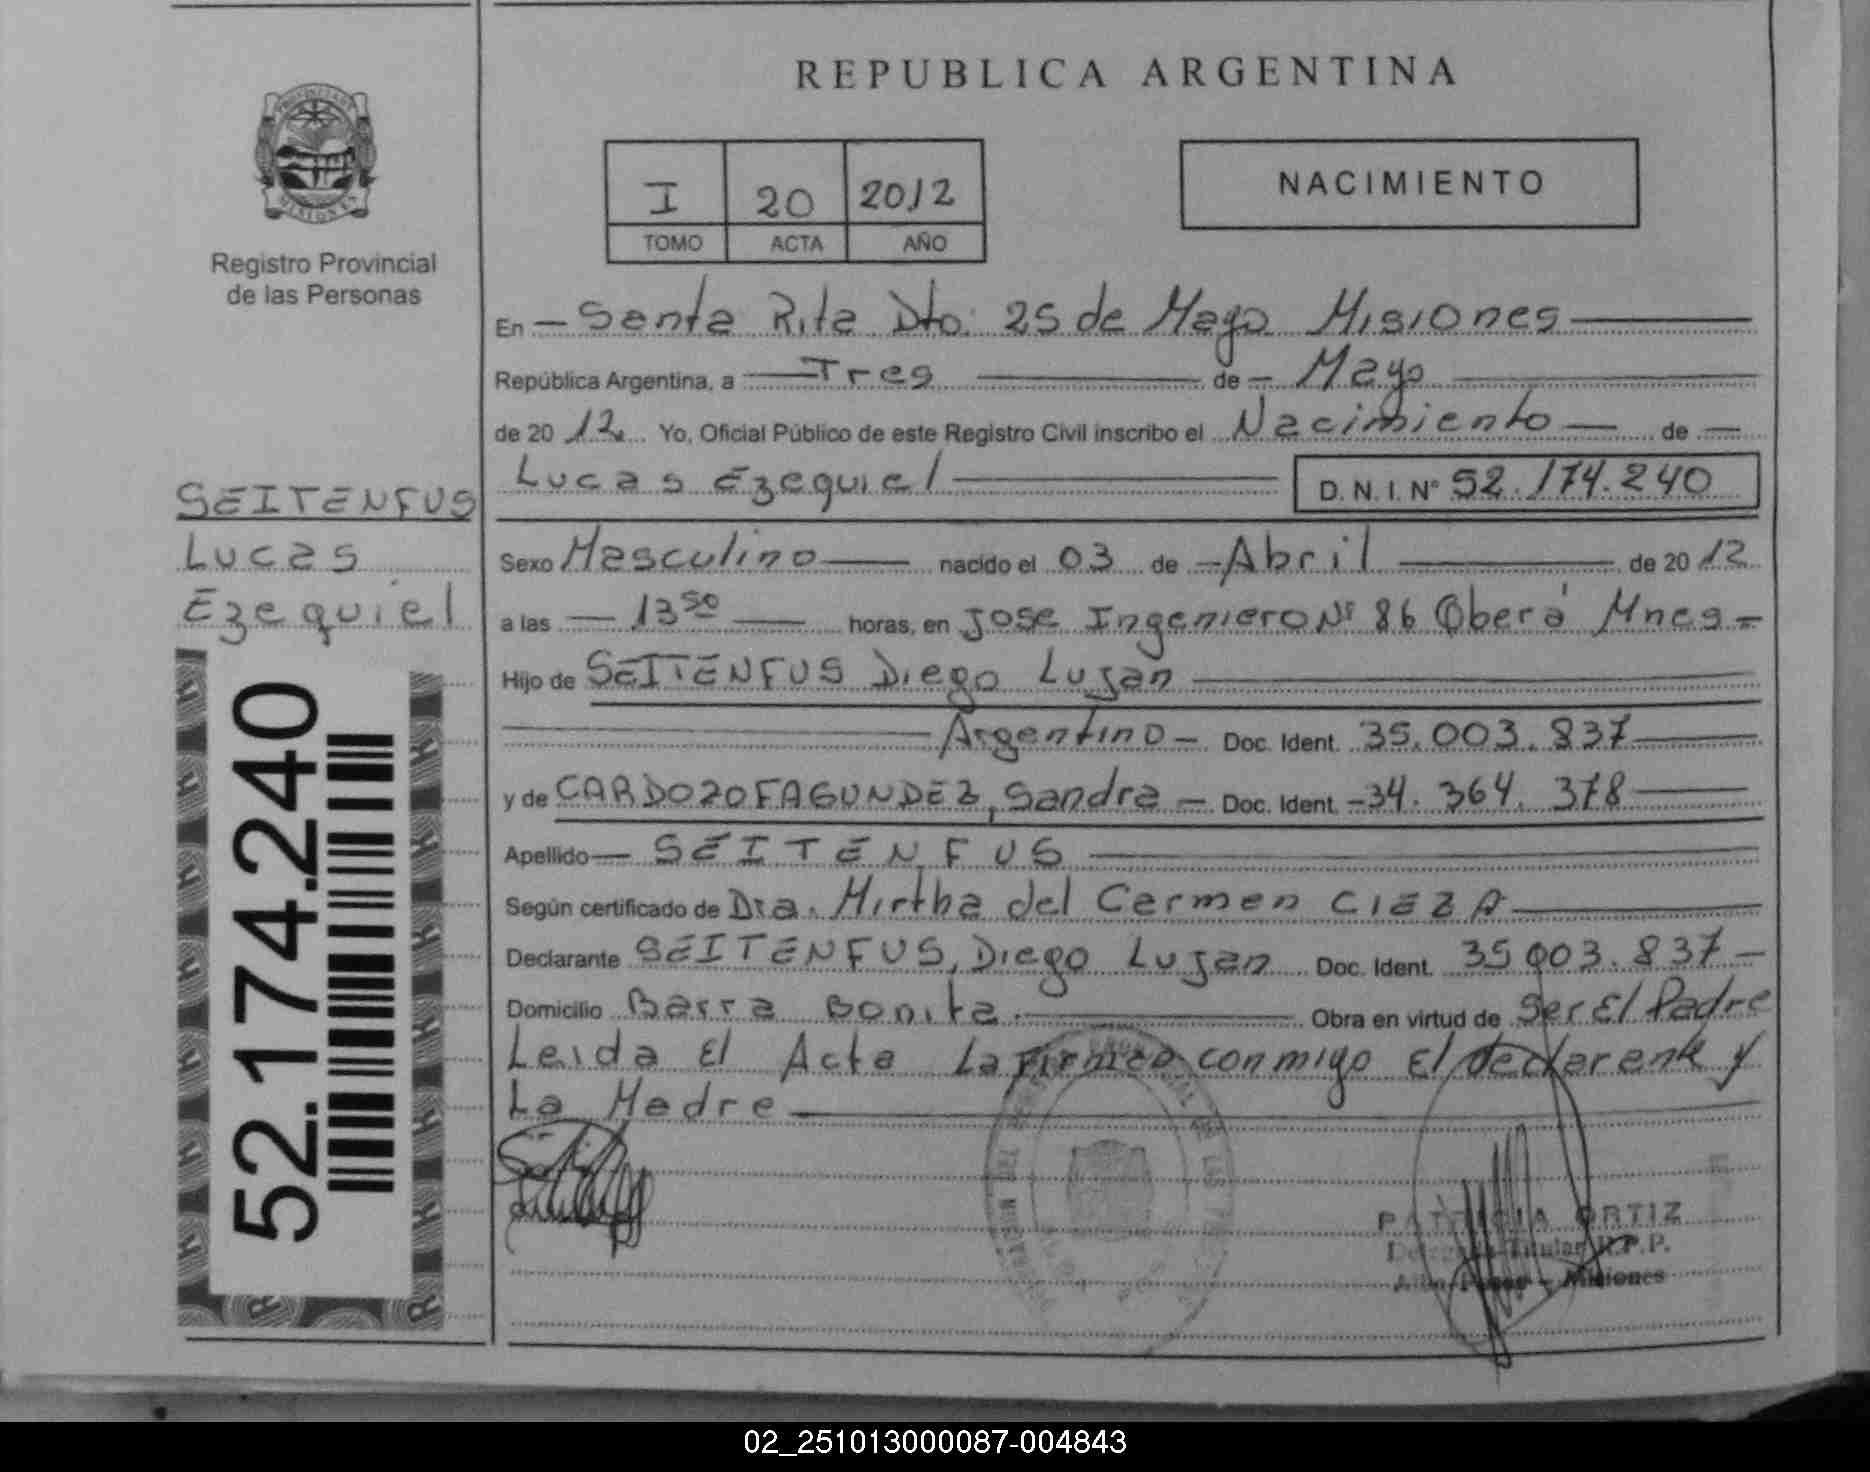 REPUBLICA ARGENTINA
PROVINCIA DE
MISIONES
Registro Provincial
de las Personas
I 20 2012
TOMO ACTA AÑO
NACIMIENTO
En - Santa Rita Dto. 25 de Mayo Misiones
República Argentina, a Tres de - Mayo
de 20 12 Yo, Oficial Público de este Registro Civil inscribo el Nacimiento de
Lucas Ezequiel D.N.I. Nº 52.174.240
SEITENFUS
Lucas
Ezequiel
52.174.240
Sexo Masculino nacido el 03 de - Abril de 20 12
a las 13 50 horas, en Jose Ingeniero Nº 86 Oberá Mnes -
Hijo de SEITENFUS Diego Lujan
Argentino - Doc. Ident. 35.003.837
y de CARDOZO FAGUNDEZ, Sandra - Doc. Ident. - 34.364.378
Apellido SEITENFUS
Según certificado de Dra. Mirtha del Carmen CIEZA
Declarante SEITENFUS, Diego Lujan Doc. Ident. 35.003.837 -
Domicilio Barra Bonita. Obra en virtud de Ser El Padre
Leida El Acta La Firman conmigo El declarante y
La Madre
PATRICIA ORTIZ
Delegada Titular R.P.P.
Misiones
02_251013000087-004843